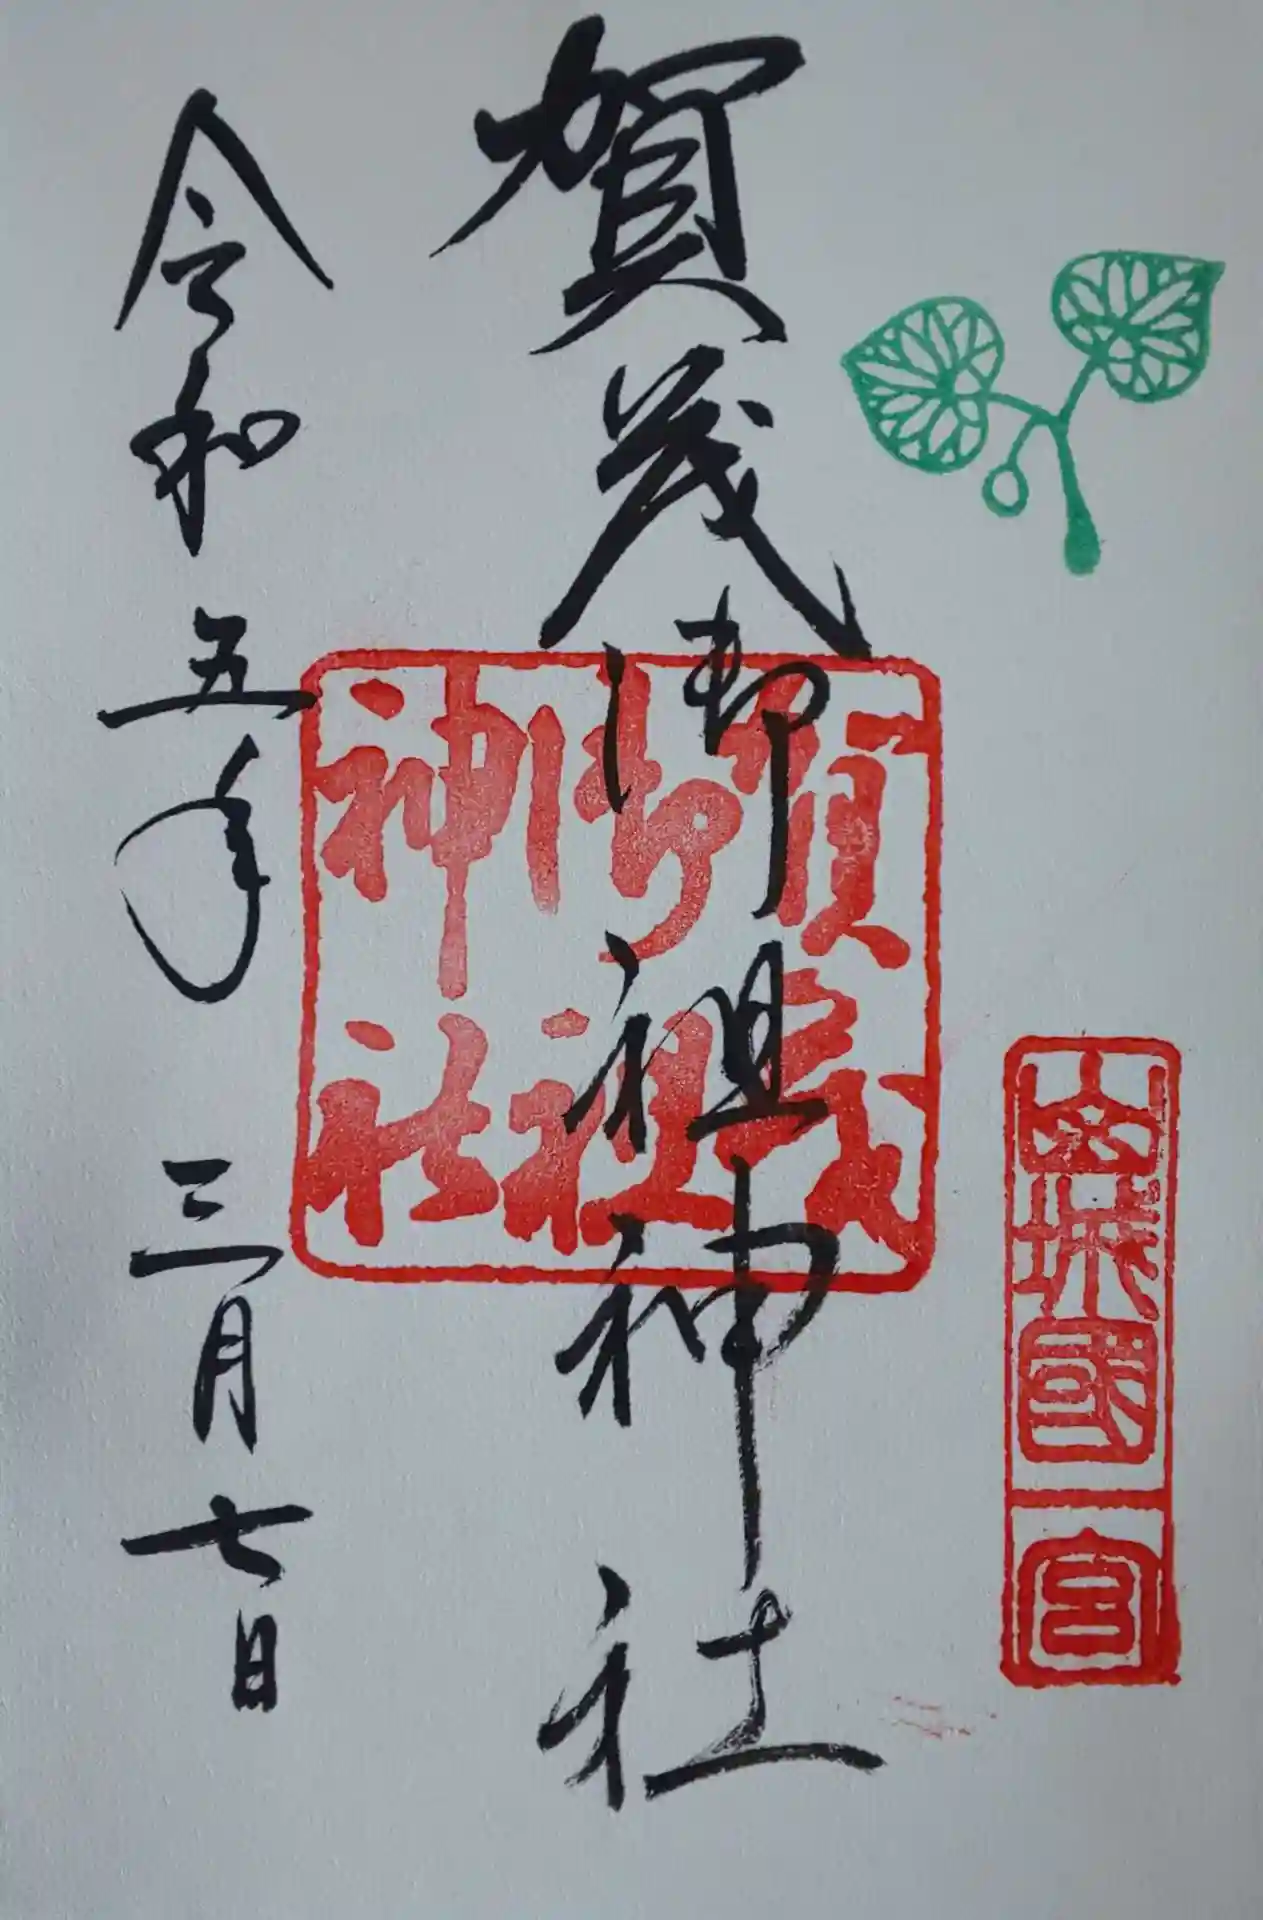 山城國一宮
賀茂御祖神社
賀茂
御祖
神社
令和五年三月七日